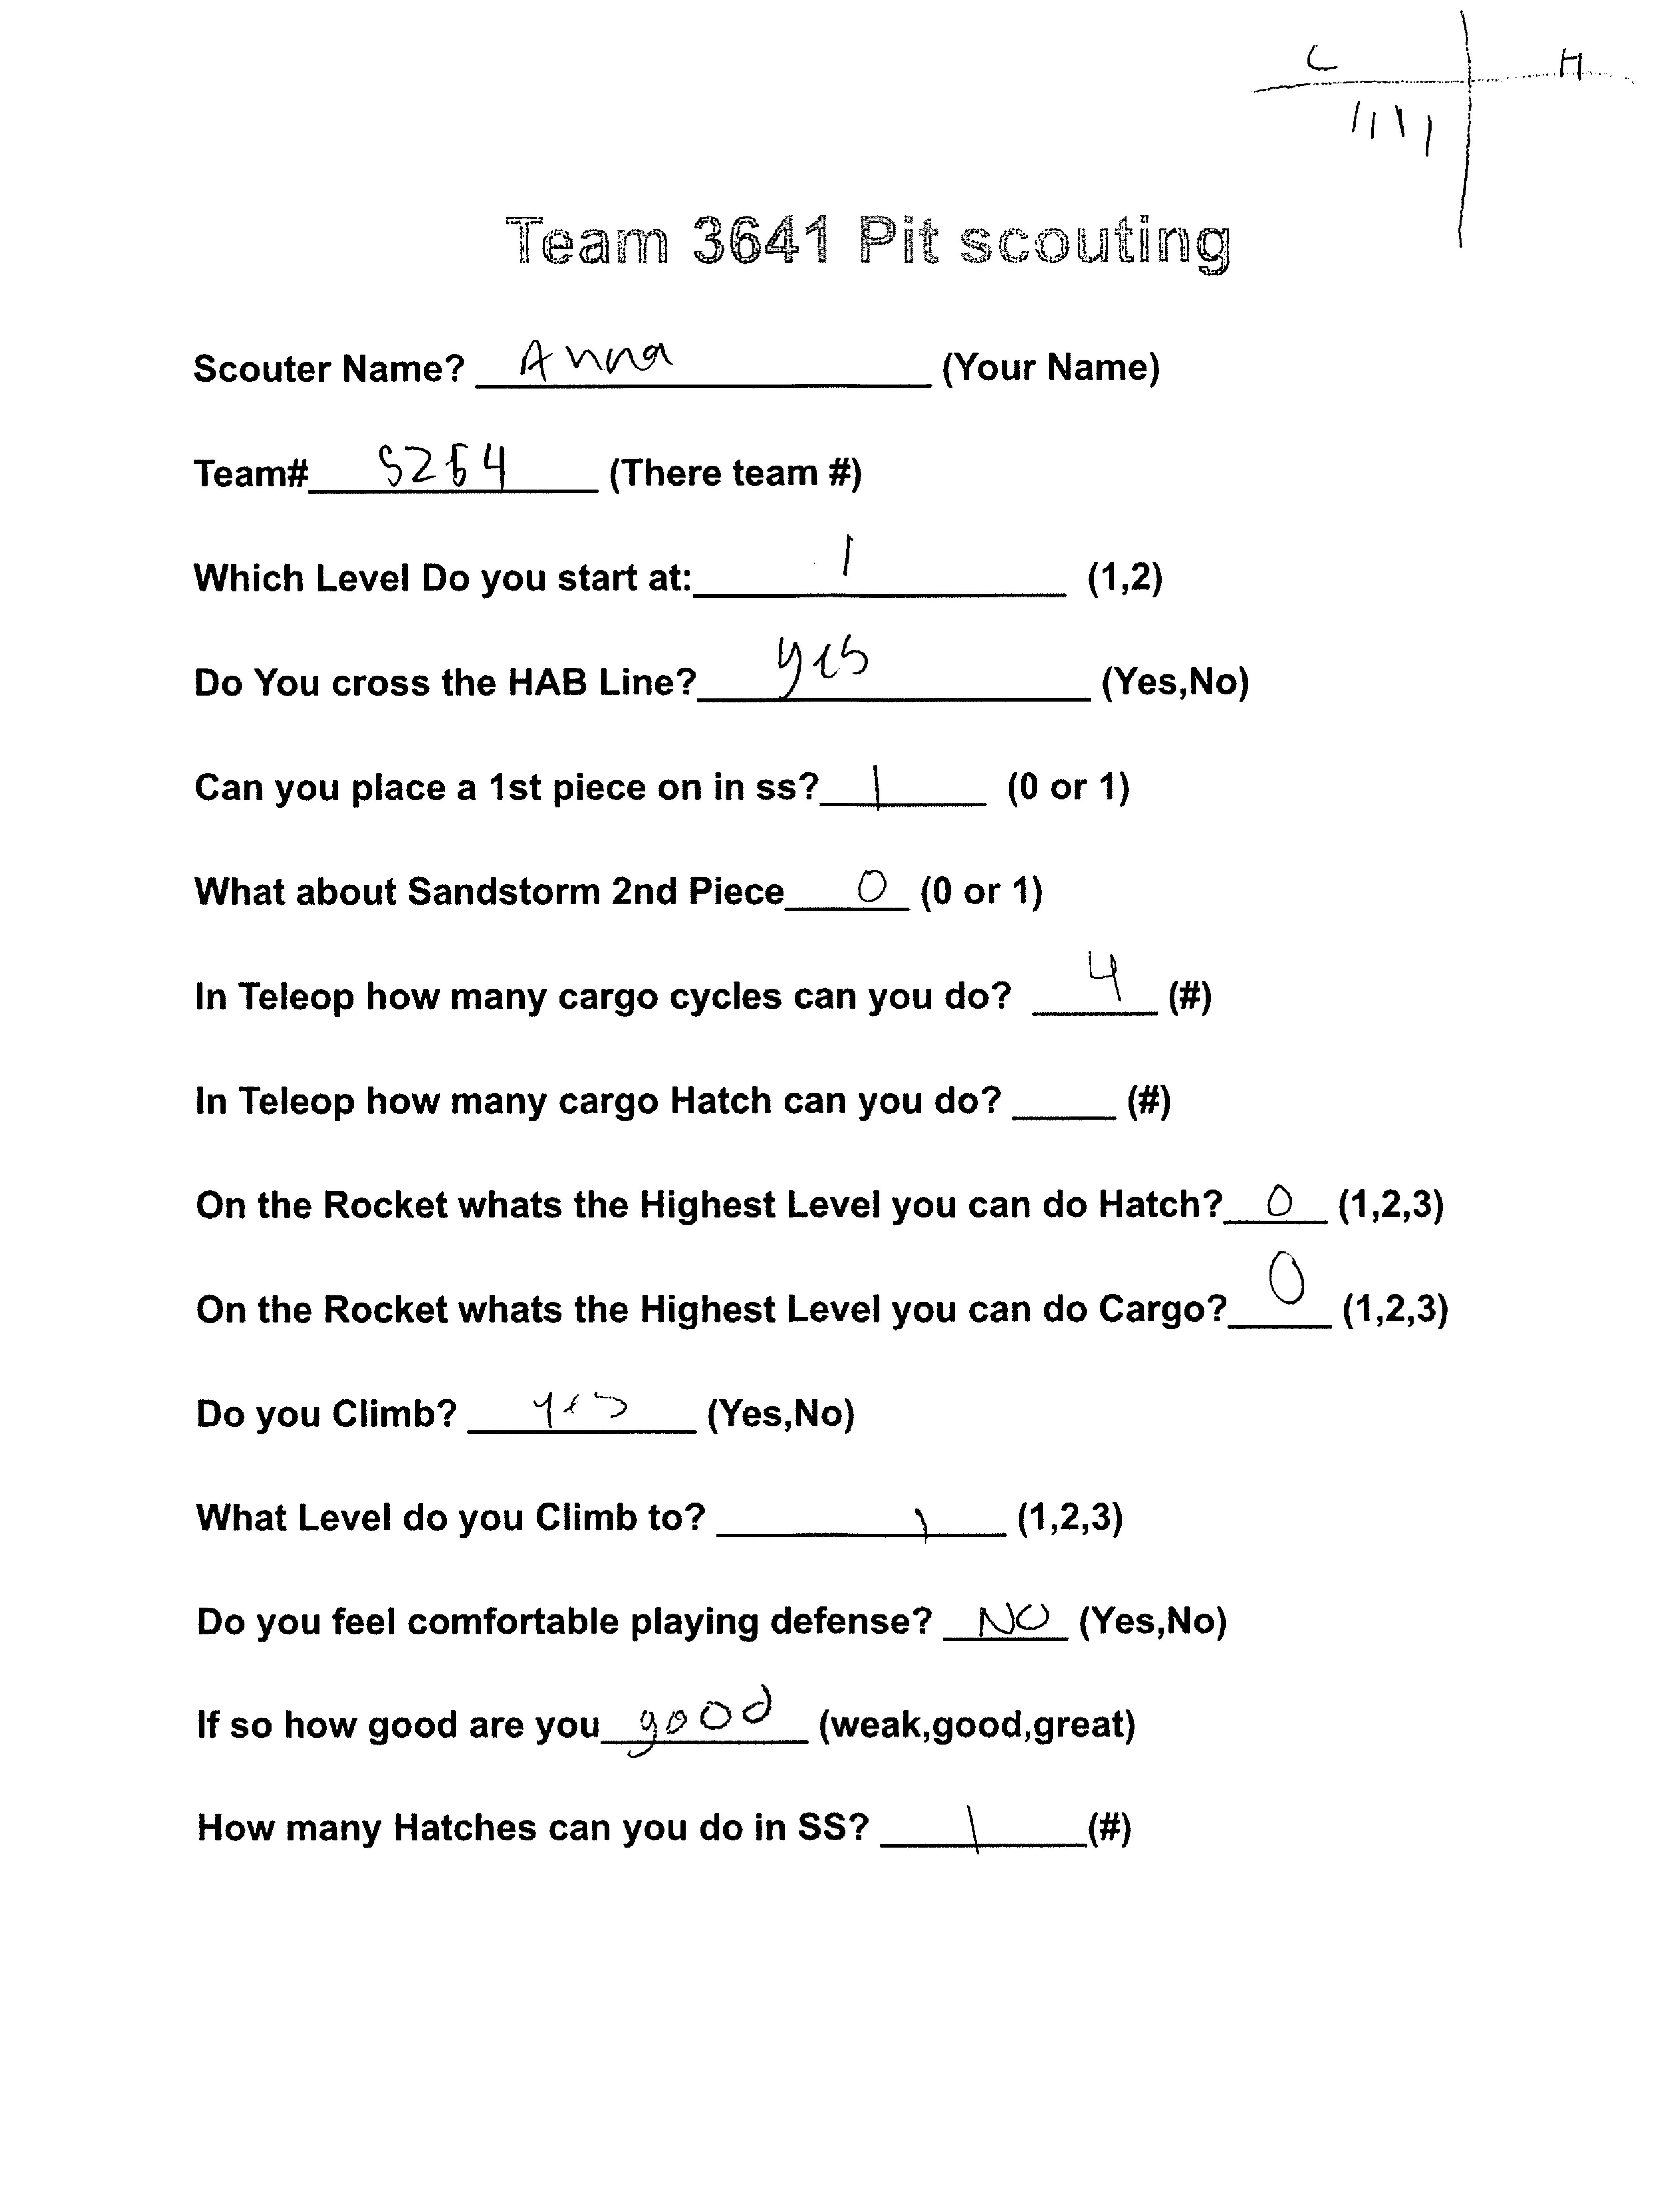 C H
||||
Team 3641 Pit scouting
Scouter Name? Anna (Your Name)
Team# 5264 (There team #)
Which Level Do you start at: 1 (1,2)
Do You cross the HAB Line? yes (Yes,No)
Can you place a 1st piece on in ss? 1 (0 or 1)
What about Sandstorm 2nd Piece 0 (0 or 1)
In Teleop how many cargo cycles can you do? 4 (#)
In Teleop how many cargo Hatch can you do? (#)
On the Rocket whats the Highest Level you can do Hatch? 0 (1,2,3)
On the Rocket whats the Highest Level you can do Cargo? 0 (1,2,3)
Do you Climb? yes (Yes,No)
What Level do you Climb to? 1 (1,2,3)
Do you feel comfortable playing defense? NO (Yes,No)
If so how good are you good (weak,good,great)
How many Hatches can you do in SS? 1 (#)